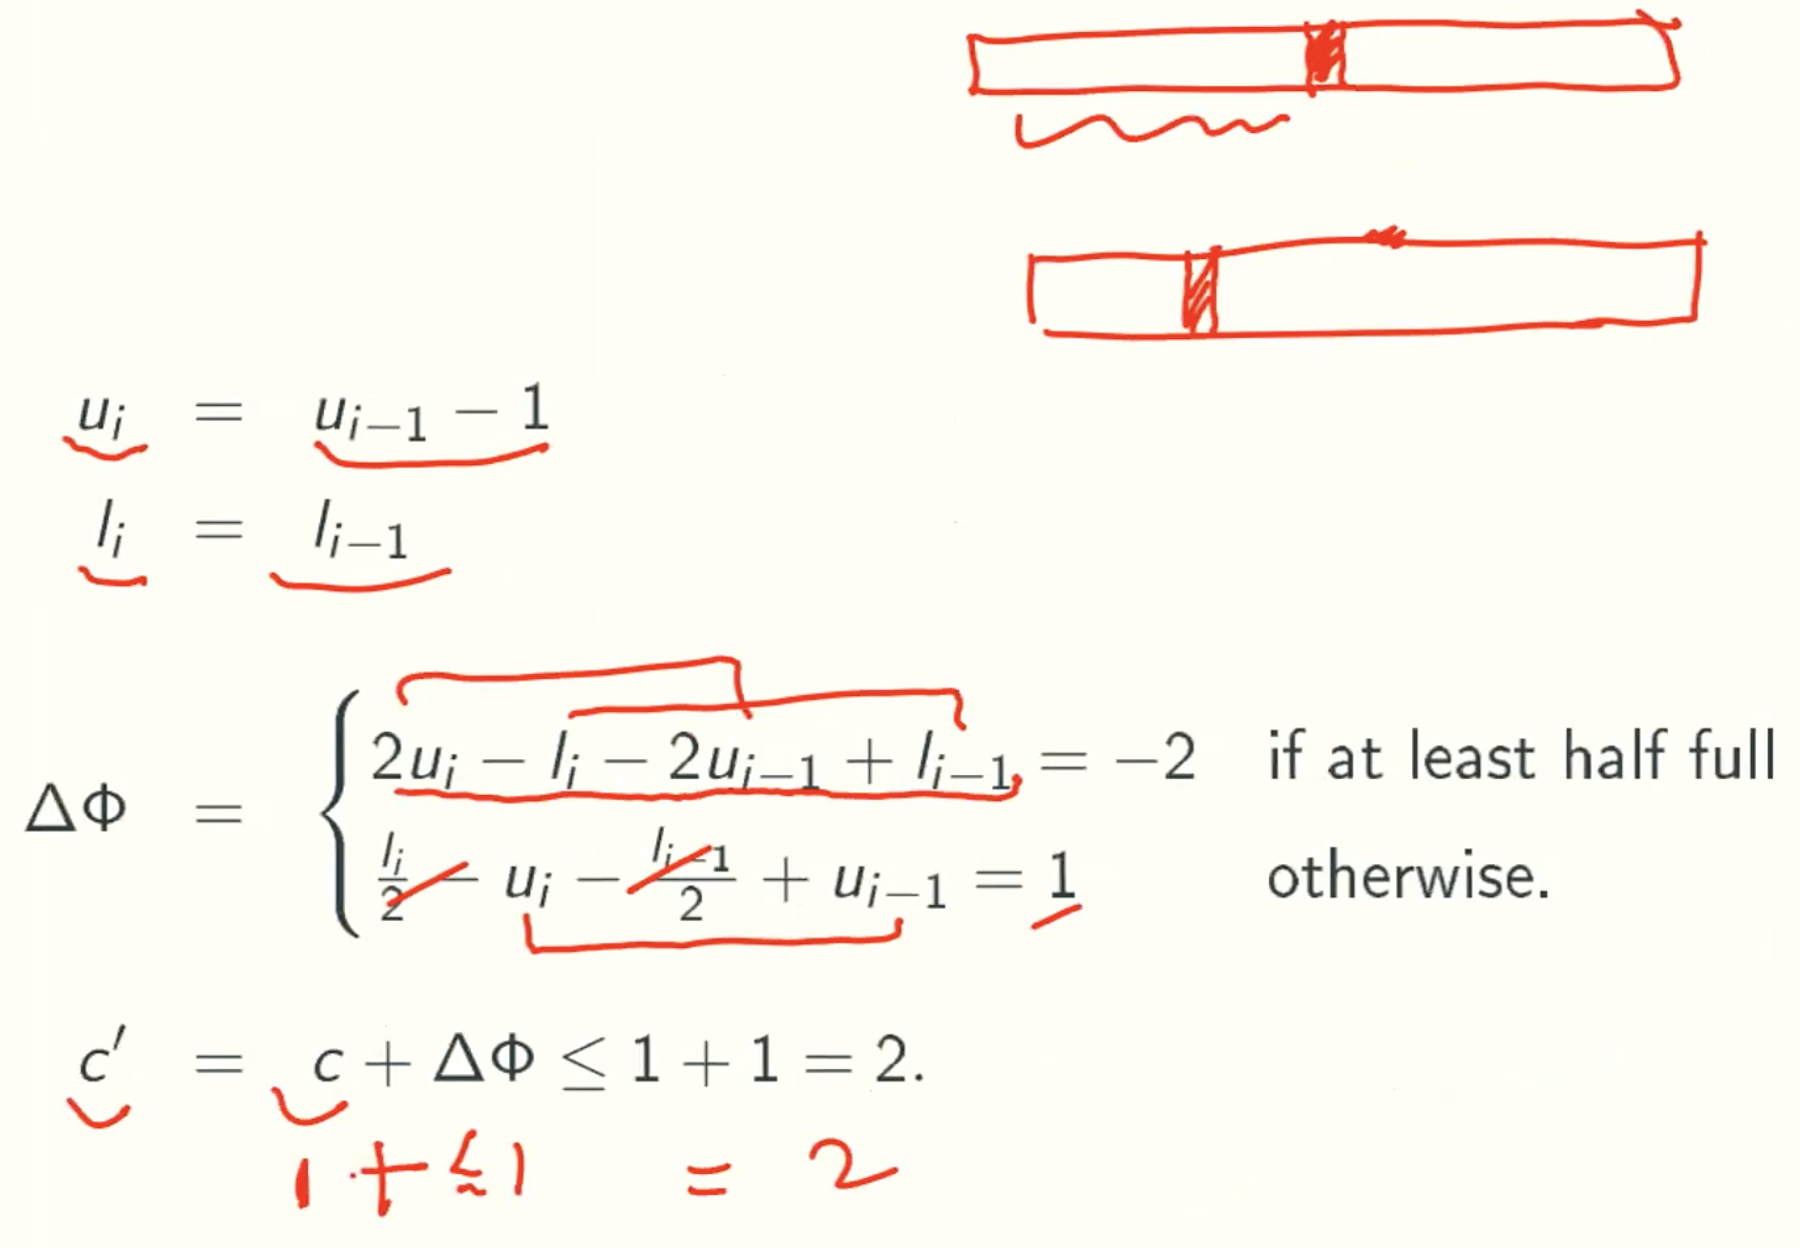 uᵢ = uᵢ₋₁ − 1
lᵢ = lᵢ₋₁
ΔΦ = { 2uᵢ − lᵢ − 2uᵢ₋₁ + lᵢ₋₁ = −2 if at least half full
lᵢ/2 − uᵢ − lᵢ₋₁/2 + uᵢ₋₁ = 1 otherwise.
c′ = c + ΔΦ ≤ 1 + 1 = 2.
1 + ≤ 1 = 2